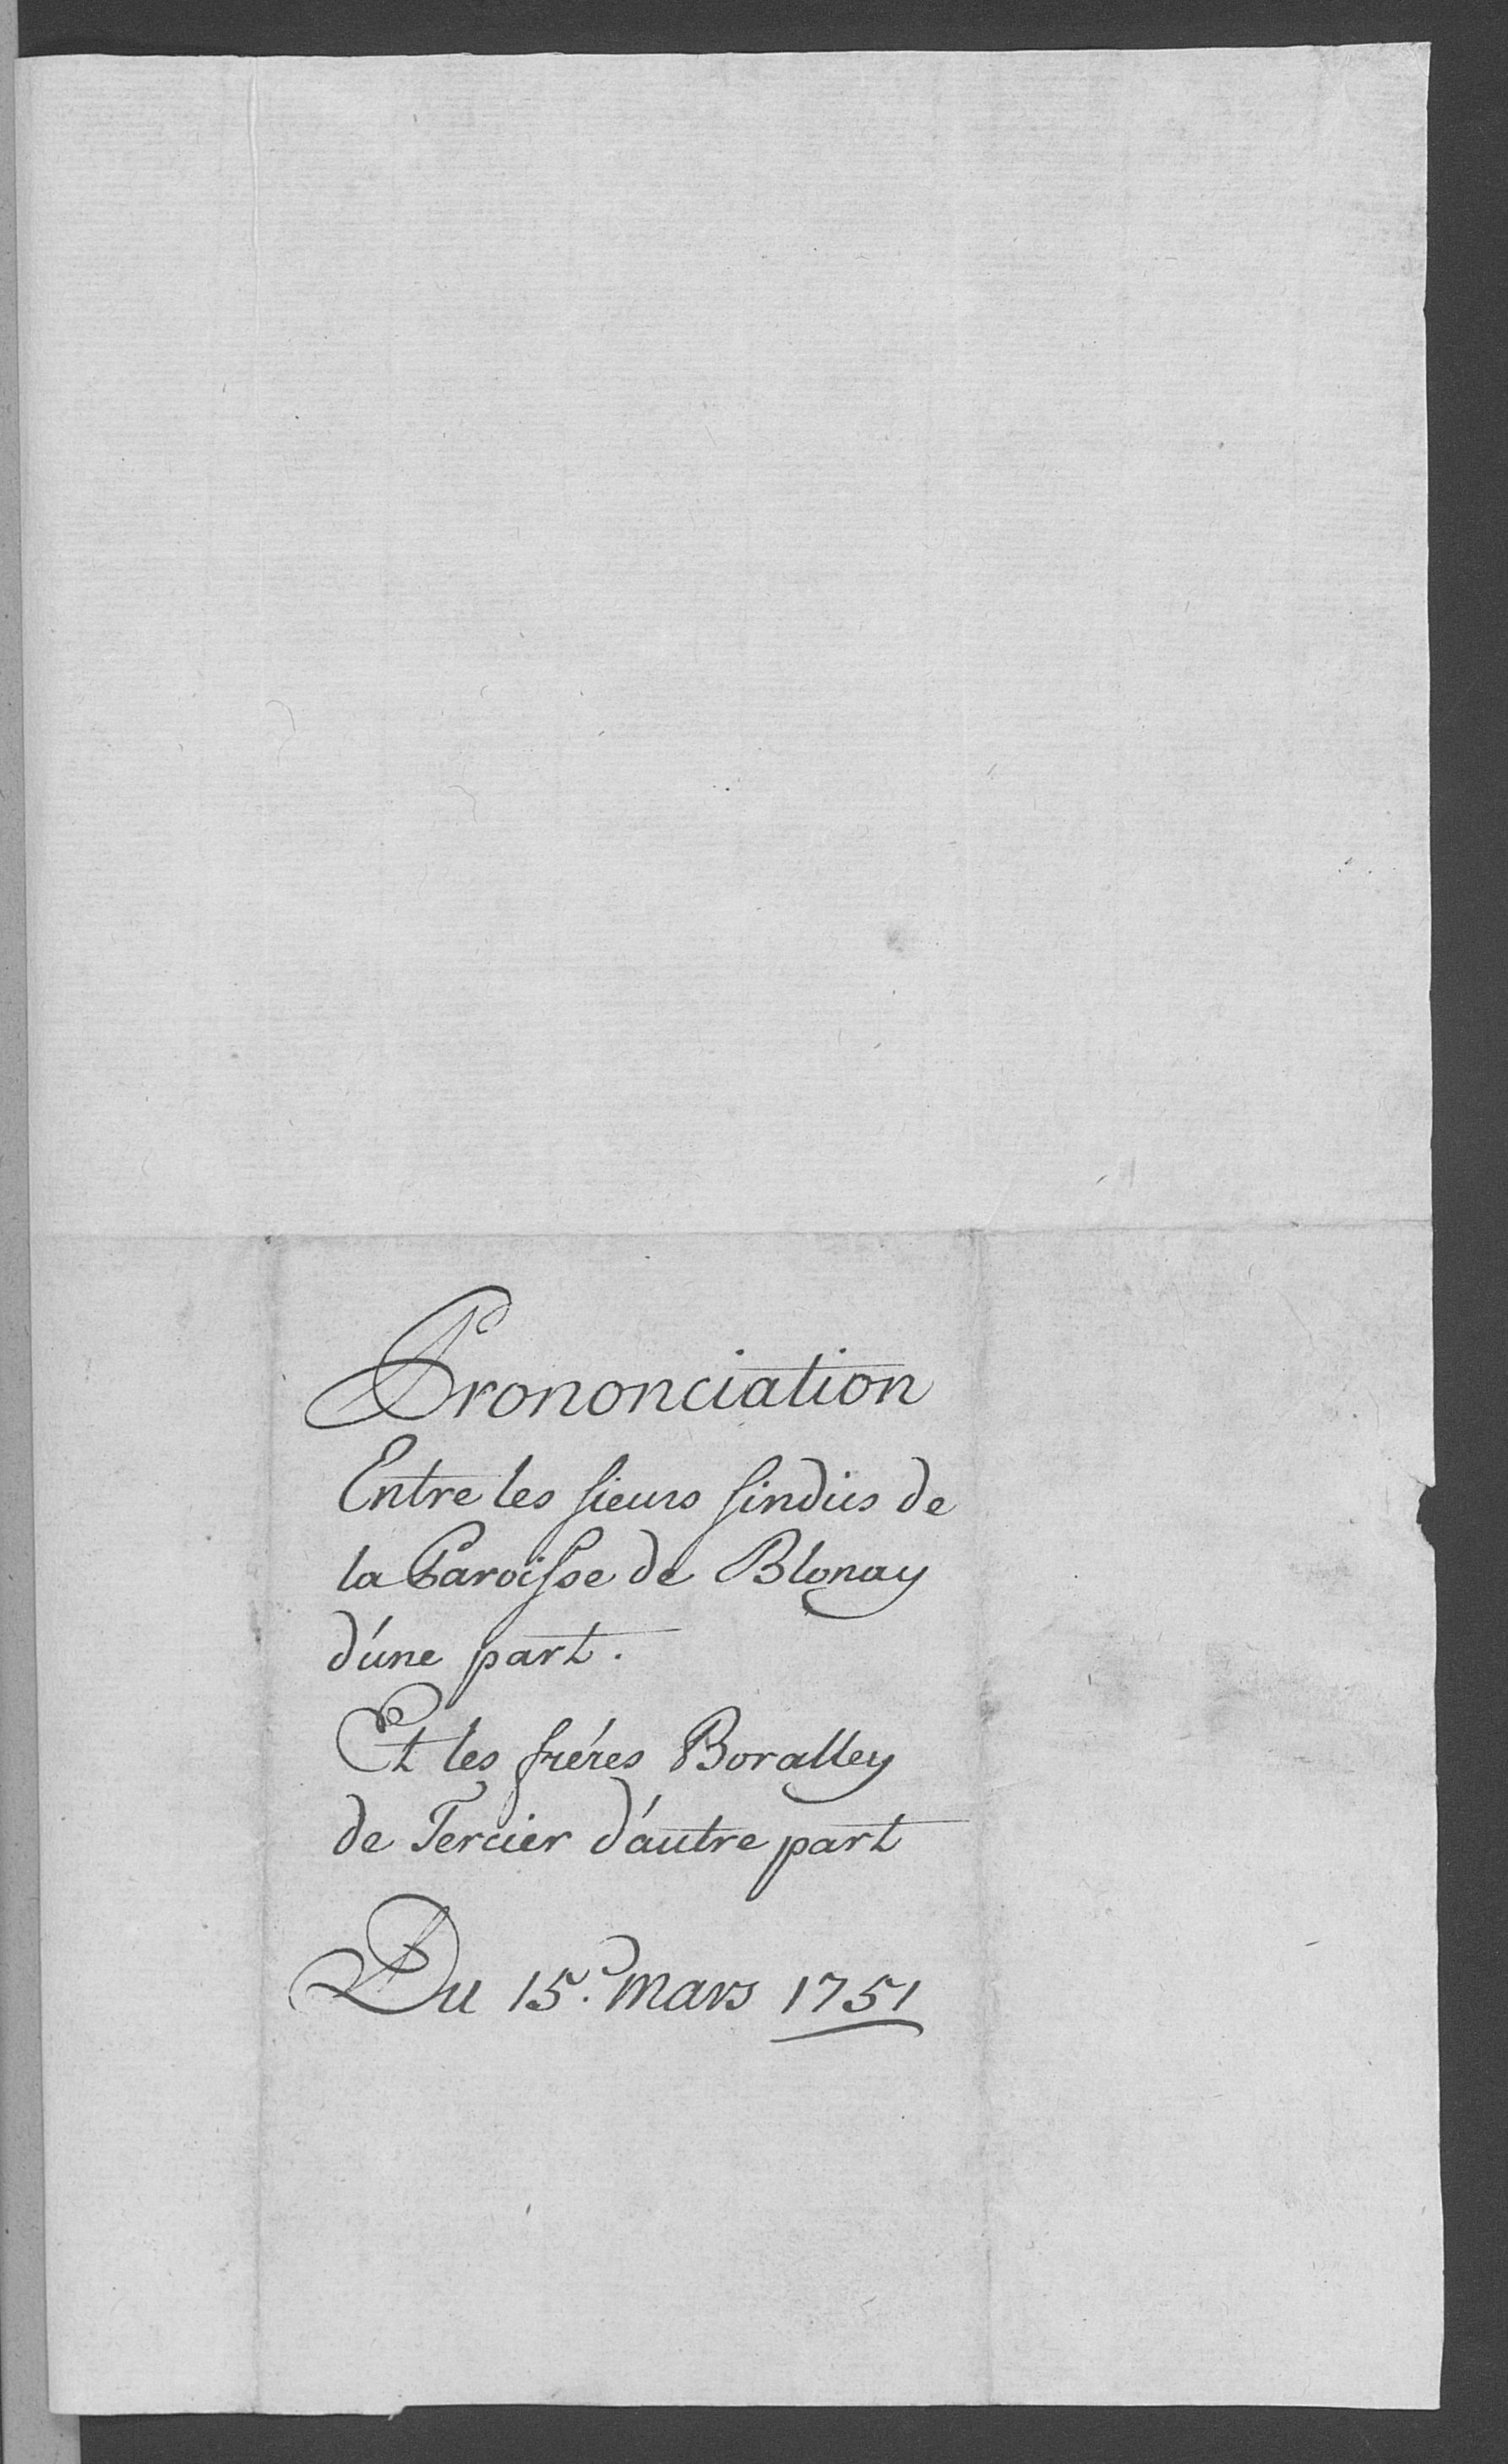 Prononciation
Entre les sieurs sindics de
la Paroisse de Blonay
d'une part.
Et les fréres Boralley
de Tercier d'autre part
Du 15.e Mars 1751